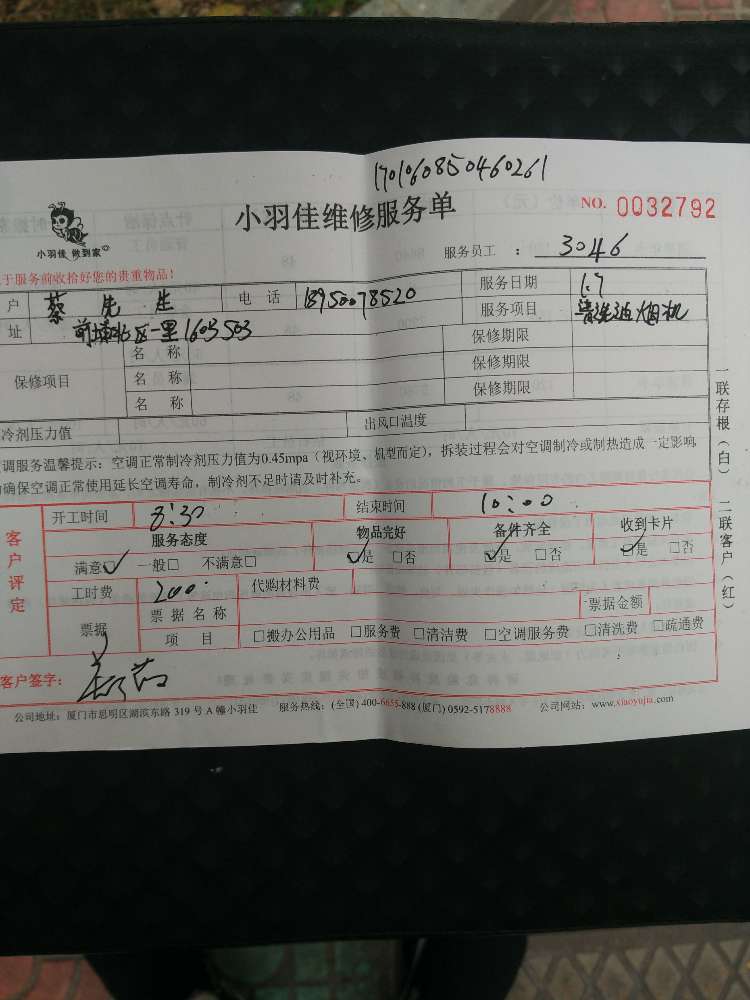 1701060850460261
小羽佳维修服务单
NO. 0032792
小羽佳 做到家
服务员工 : 3046
于服务前收拾好您的贵重物品!
户 蔡先生 电话 13950078520 服务日期 1.7
址 前埔北区一里160 503 服务项目 清洗油烟机
保修项目 名称 保修期限
名称 保修期限
名称 保修期限
冷剂压力值 出风口温度
调服务温馨提示：空调正常制冷剂压力值为0.45mpa（视环境、机型而定），拆装过程会对空调制冷或制热造成一定影响
确保空调正常使用延长空调寿命，制冷剂不足时请及时补充。
客户评定
开工时间 8:30 结束时间 10:00
服务态度 物品完好 备件齐全 收到卡片
满意☑ 一般□ 不满意□ ☑是 □否 ☑是 □否 ☑是 □否
工时费 200. 代购材料费
票据 票据名称 票据金额
项目 □搬办公用品 □服务费 □清洁费 □空调服务费 □清洗费 □疏通费
客户签字：
公司地址：厦门市思明区湖滨东路 319 号 A 幢小羽佳 服务热线：(全国) 400-6655-888 (厦门) 0592-5178888 公司网站：www.xiaoyujia.com
一联存根（白） 二联客户（红）